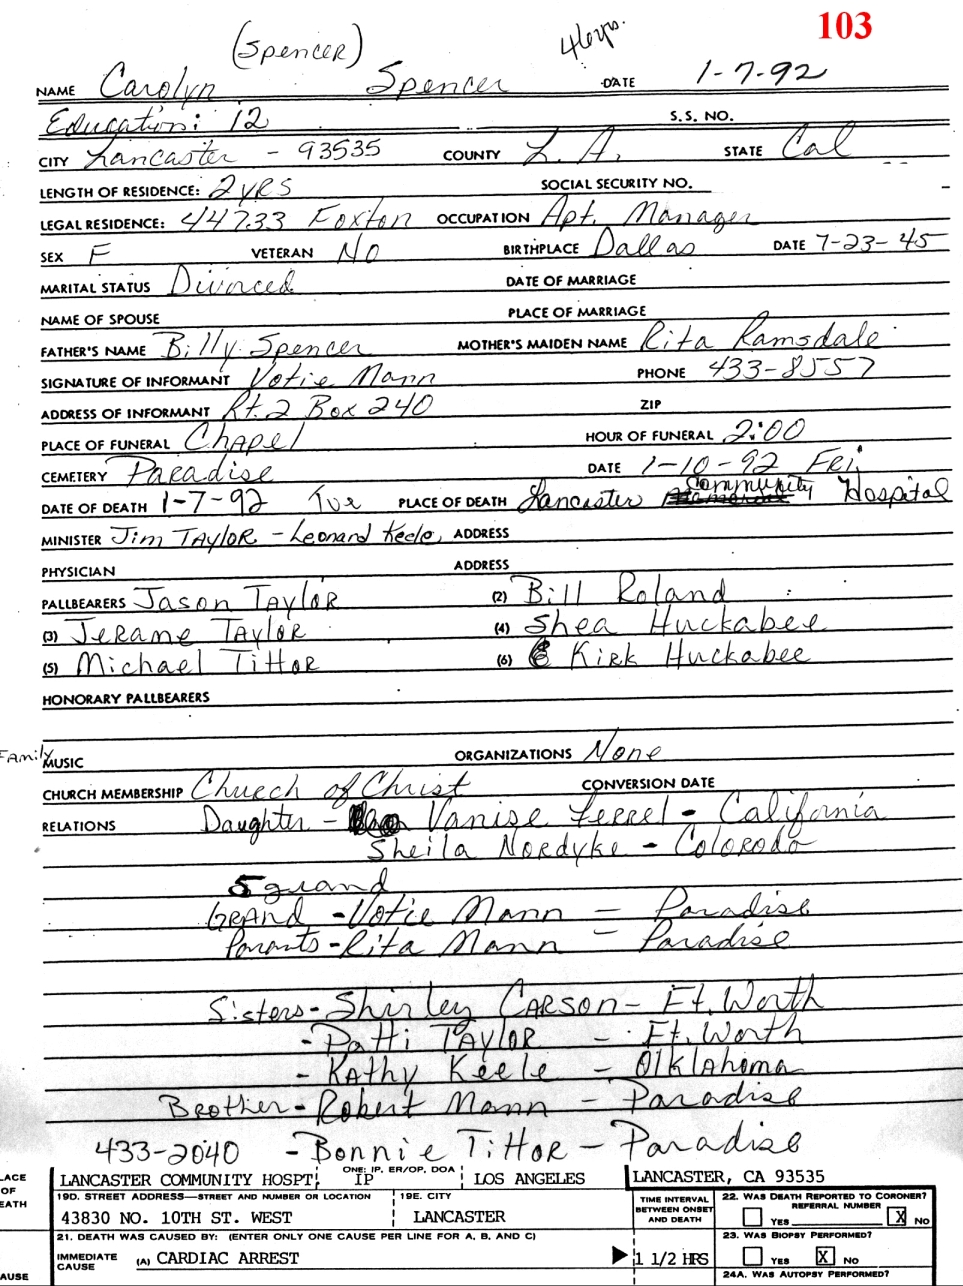 103
(Spencer) 46yrs.
NAME Carolyn Spencer DATE 1-7-92
Education: 12 S.S. NO.
CITY Lancaster - 93535 COUNTY L.A. STATE Cal
LENGTH OF RESIDENCE: 2yrs SOCIAL SECURITY NO.
LEGAL RESIDENCE: 44733 Foxton OCCUPATION Apt. Manager
SEX F VETERAN No BIRTHPLACE Dallas DATE 7-23-45
MARITAL STATUS Divorced DATE OF MARRIAGE
NAME OF SPOUSE PLACE OF MARRIAGE
FATHER'S NAME Billy Spencer MOTHER'S MAIDEN NAME Rita Ramsdale
SIGNATURE OF INFORMANT Votie Mann PHONE 433-8557
ADDRESS OF INFORMANT Rt. 2 Box 240 ZIP
PLACE OF FUNERAL Chapel HOUR OF FUNERAL 2:00
CEMETERY Paradise DATE 1-10-92 Fri.
DATE OF DEATH 1-7-92 Tue PLACE OF DEATH Lancaster Community Hospital
MINISTER Jim Taylor - Leonard Keele, ADDRESS
PHYSICIAN ADDRESS
PALLBEARERS Jason Taylor (2) Bill Roland
(3) Jerame Taylor (4) Shea Huckabee
(5) Michael Tittor (6) Kirk Huckabee
HONORARY PALLBEARERS
Family MUSIC ORGANIZATIONS None
CHURCH MEMBERSHIP Church of Christ CONVERSION DATE
RELATIONS Daughter - Vanise Ferrel - California
Sheila Nordyke - Colorodo
5 grand
Grand - Votie Mann - Paradise
Parents - Rita Mann - Paradise
Sisters - Shirley Carson - Ft. Worth
- Patti Taylor - Ft. Worth
- Kathy Keele - Olklahoma
Brother - Robert Mann - Paradise
433-2040 - Bonnie Tittor - Paradise
LACE OF EATH LANCASTER COMMUNITY HOSPT. ONE: IP, ER/OP, DOA IP LOS ANGELES LANCASTER, CA 93535
19D. STREET ADDRESS—STREET AND NUMBER OR LOCATION 19E. CITY TIME INTERVAL BETWEEN ONSET AND DEATH 22. WAS DEATH REPORTED TO CORONER? REFERRAL NUMBER
43830 NO. 10TH ST. WEST LANCASTER YES X NO
21. DEATH WAS CAUSED BY: (ENTER ONLY ONE CAUSE PER LINE FOR A, B, AND C) 23. WAS BIOPSY PERFORMED?
AUSE IMMEDIATE CAUSE (A) CARDIAC ARREST 1 1/2 HRS YES X NO
24A. WAS AUTOPSY PERFORMED?